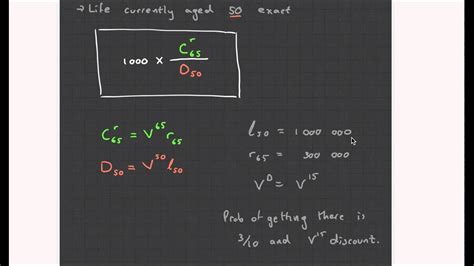 → Life currently aged 50 exact
1000 × C^r_65 / D_50
C^r_65 = V^65 r_65
D_50 = V^50 l_50
l_50 = 1 000 000
r_65 = 300 000
V^D = V^15
Prob of getting there is
3/10 and V^15 discount.